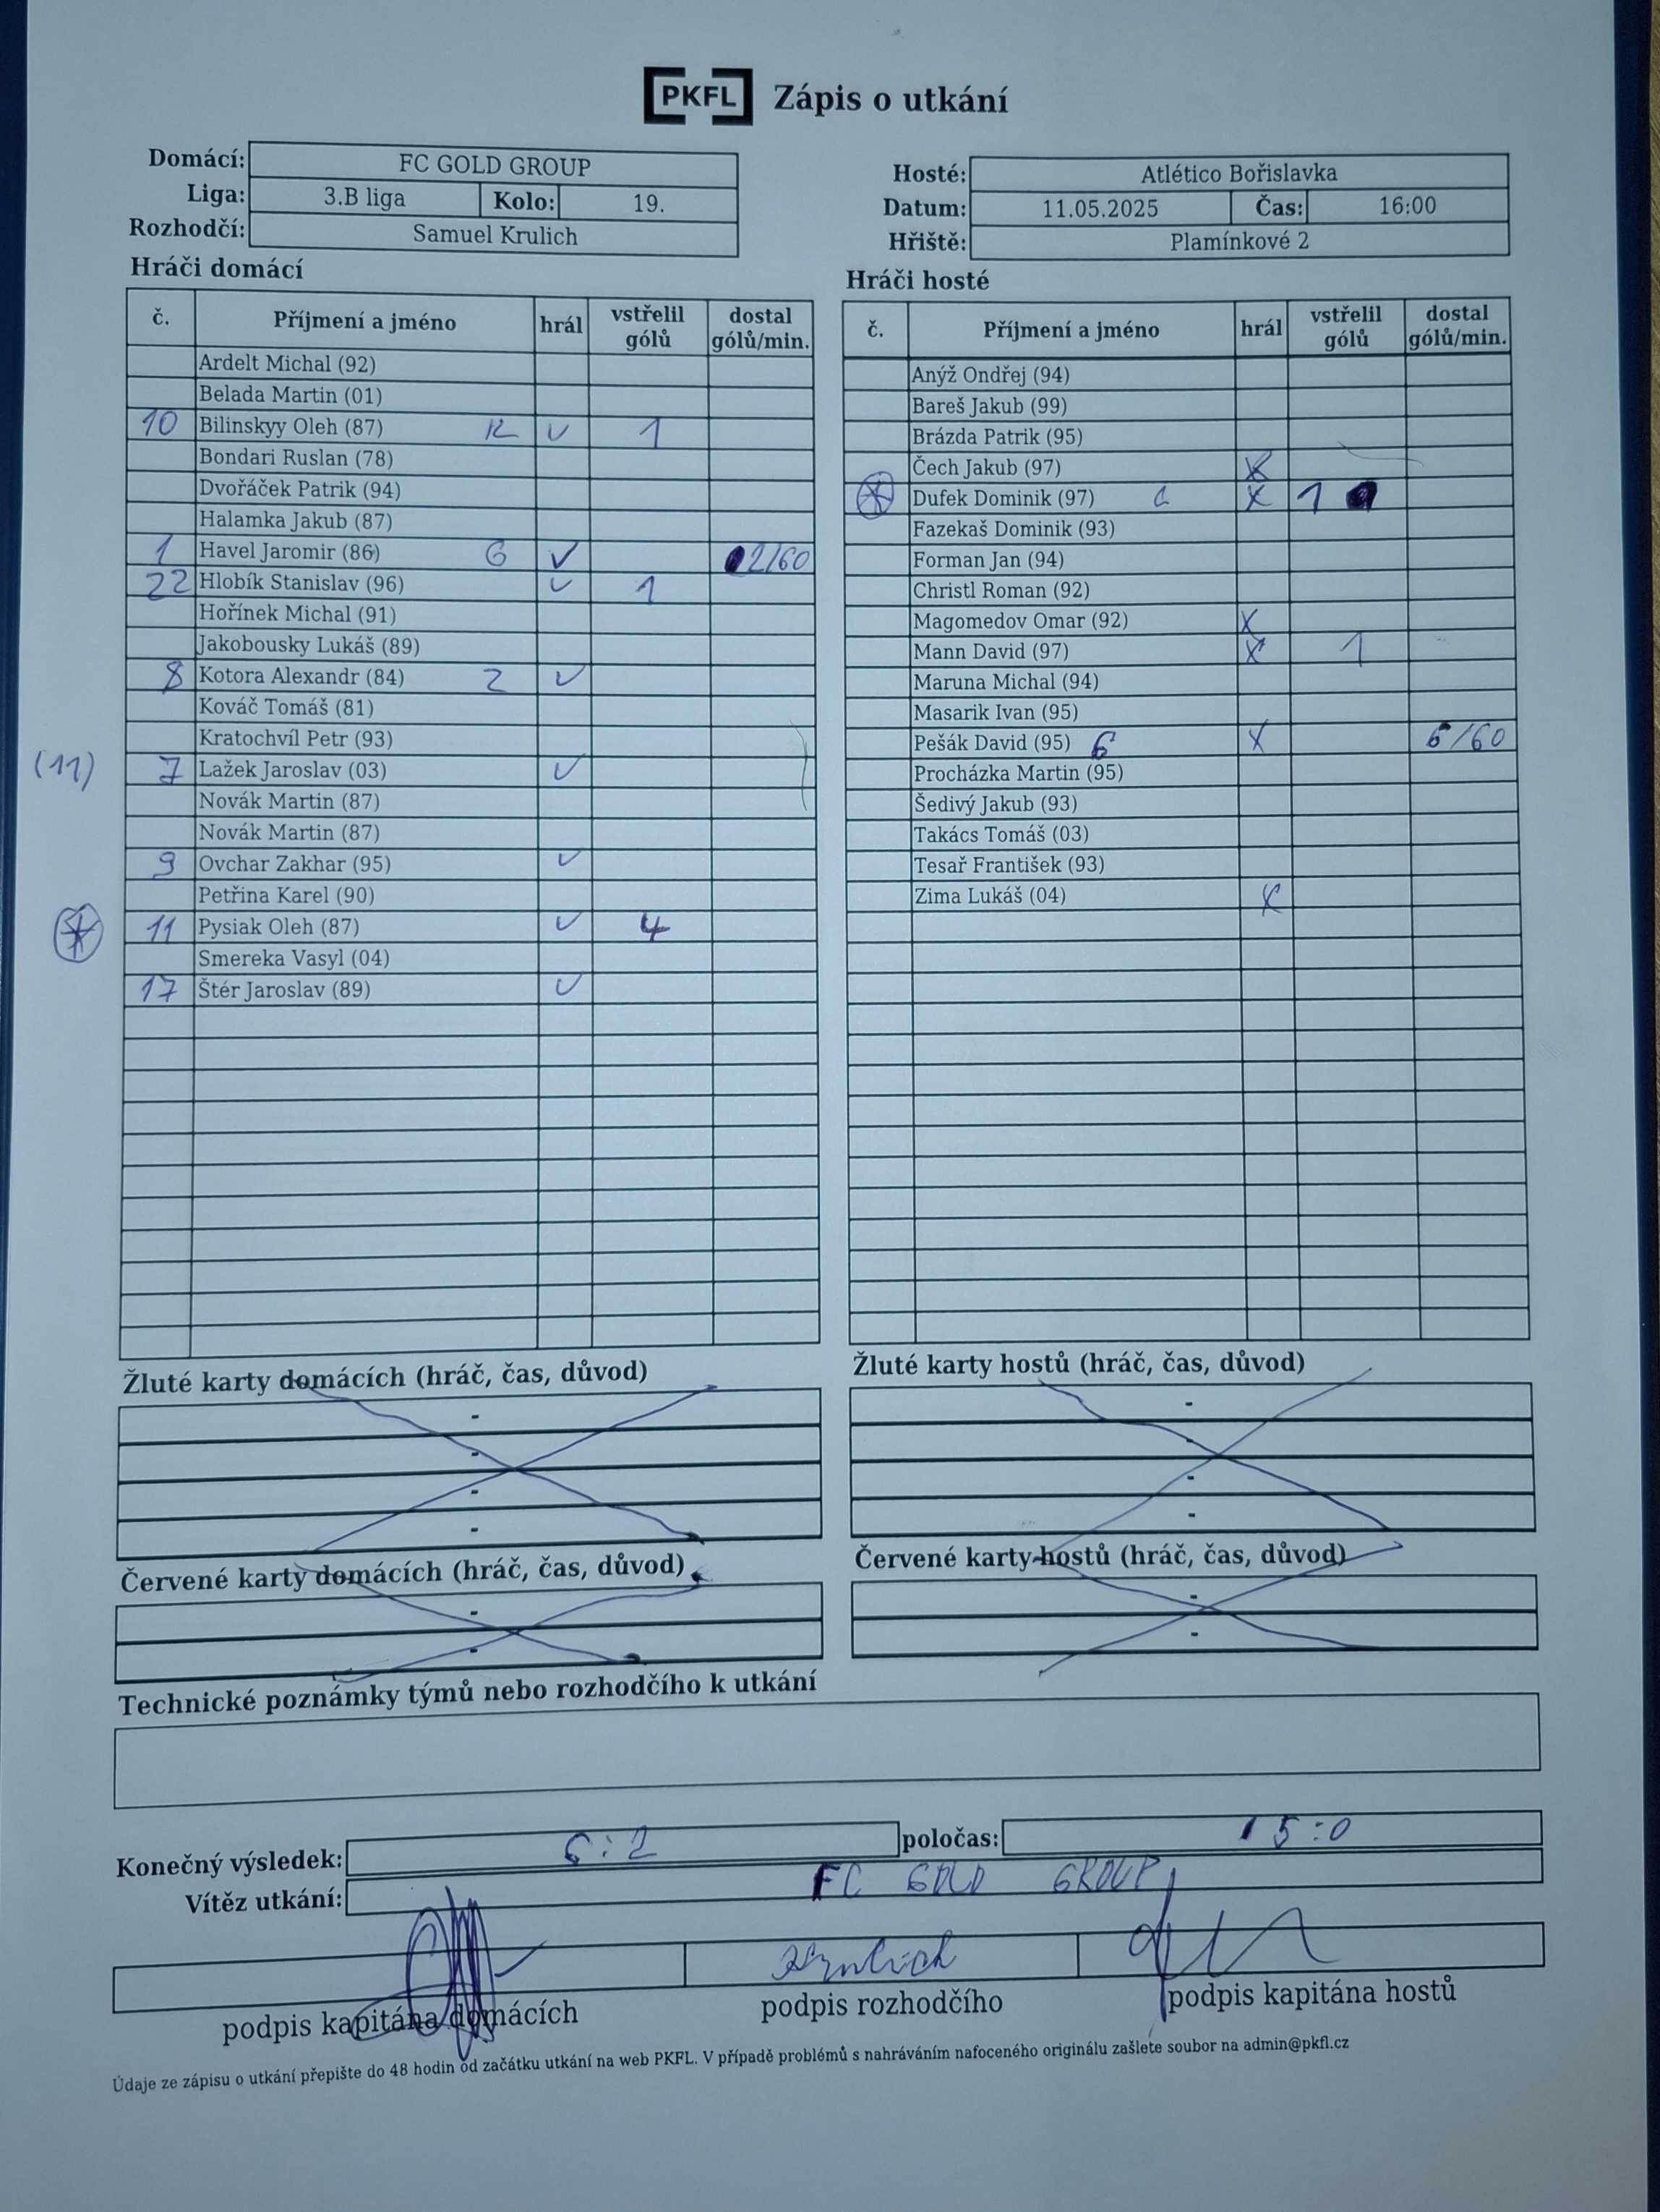 PKFL Zápis o utkání
Domácí: FC GOLD GROUP
Liga: 3.B liga Kolo: 19.
Rozhodčí: Samuel Krulich
Hosté: Atlético Bořislavka
Datum: 11.05.2025 Čas: 16:00
Hřiště: Plamínkové 2
Hráči domácí
č. Příjmení a jméno hrál vstřelil gólů dostal gólů/min.
Ardelt Michal (92)
Belada Martin (01)
10 Bilinskyy Oleh (87) 1
Bondari Ruslan (78)
Dvořáček Patrik (94)
Halamka Jakub (87)
1 Havel Jaromir (86) G 2/60
22 Hlobík Stanislav (96) 1
Hořínek Michal (91)
Jakobousky Lukáš (89)
8 Kotora Alexandr (84)
Kováč Tomáš (81)
Kratochvíl Petr (93)
(11) 7 Lažek Jaroslav (03)
Novák Martin (87)
Novák Martin (87)
9 Ovchar Zakhar (95)
Petřina Karel (90)
11 Pysiak Oleh (87) 4
Smereka Vasyl (04)
17 Štér Jaroslav (89)
Hráči hosté
č. Příjmení a jméno hrál vstřelil gólů dostal gólů/min.
Anýž Ondřej (94)
Bareš Jakub (99)
Brázda Patrik (95)
Čech Jakub (97) X
Dufek Dominik (97) X 1
Fazekaš Dominik (93)
Forman Jan (94)
Christl Roman (92)
Magomedov Omar (92) X
Mann David (97) X 1
Maruna Michal (94)
Masarik Ivan (95)
Pešák David (95) G X 6/60
Procházka Martin (95)
Šedivý Jakub (93)
Takács Tomáš (03)
Tesař František (93)
Zima Lukáš (04) X
Žluté karty domácích (hráč, čas, důvod)
-
-
-
-
Žluté karty hostů (hráč, čas, důvod)
-
-
-
-
Červené karty domácích (hráč, čas, důvod)
-
-
Červené karty hostů (hráč, čas, důvod)
-
-
Technické poznámky týmů nebo rozhodčího k utkání
Konečný výsledek: 6:2 poločas: 5:0
Vítěz utkání: FC GOLD GROUP
Krulich
podpis kapitána domácích podpis rozhodčího podpis kapitána hostů
Údaje ze zápisu o utkání přepište do 48 hodin od začátku utkání na web PKFL. V případě problémů s nahráváním nafoceného originálu zašlete soubor na admin@pkfl.cz